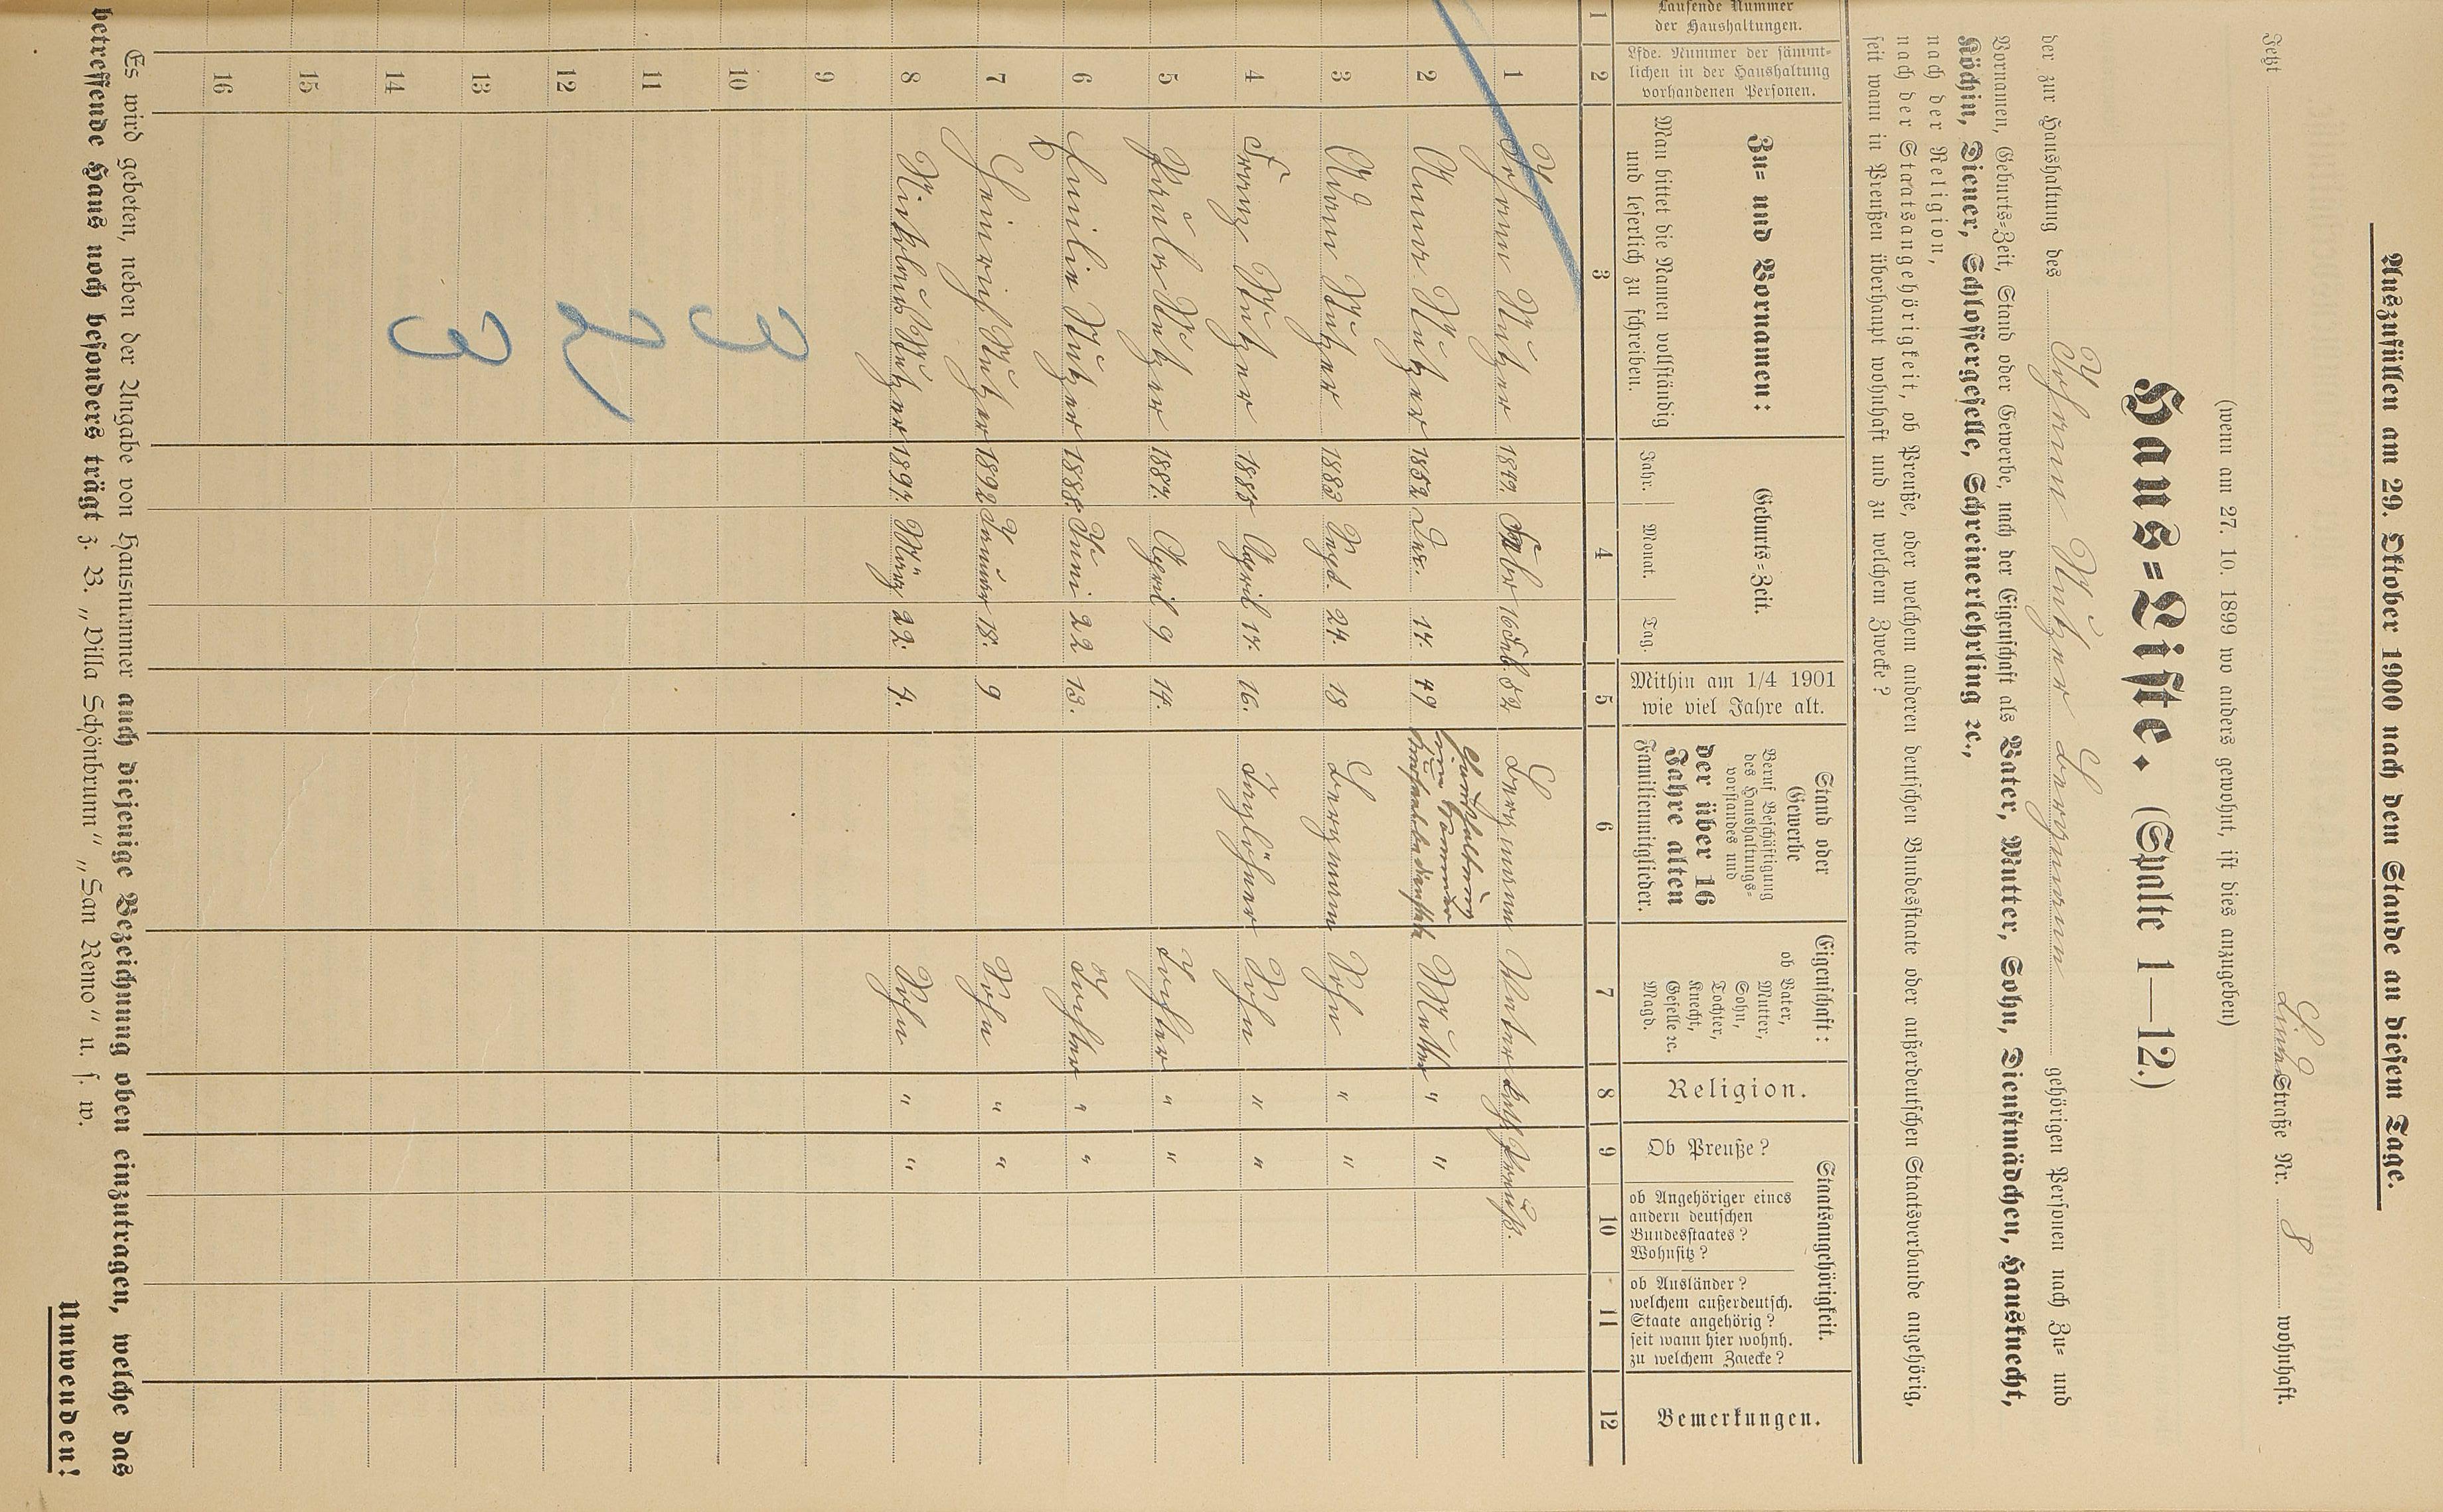 Auszufüllen am 29. Oktober 1900 nach dem Stande an diesem Tage.
Jetzt Linden Straße Nr. 8 wohnhaft.
(wenn am 27. 10. 1899 wo anders gewohnt, ist dies anzugeben)
Haus=Liste. (Spalte 1—12.)
der zur Haushaltung des Johann Bergmann gehörigen Personen nach Zu= und
Vornamen, Geburts=Zeit, Stand oder Gewerbe, nach der Eigenschaft als Vater, Mutter, Sohn, Dienstmädchen, Hausknecht,
Köchin, Diener, Schlossergeselle, Schreinerlehrling ꝛc.,
nach der Religion,
nach der Staatsangehörigkeit, ob Preuße, oder welchem anderen deutschen Bundesstaate oder außerdeutschen Staatsverbande angehörig,
seit wann in Preußen überhaupt wohnhaft und zu welchem Zwecke?
Laufende Nummer
der Haushaltungen.
Lfde. Nummer der sämmt=
lichen in der Haushaltung
vorhandenen Personen.
Zu= und Vornamen:
Man bittet die Namen vollständig
und leserlich zu schreiben.
Geburts=Zeit.
Jahr. Monat. Tag.
Mithin am 1/4 1901
wie viel Jahre alt.
Stand oder
Gewerbe
Beruf Beschäftigung
des Haushaltungs=
vorstandes und
der über 16
Jahre alten
Familienmitglieder.
Eigenschaft:
ob Vater,
Mutter,
Sohn,
Tochter,
Knecht,
Geselle ꝛc.
Magd.
Religion.
Staatsangehörigkeit.
Ob Preuße?
ob Angehöriger eines
andern deutschen
Bundesstaates?
Wohnsitz?
ob Ausländer?
welchem außerdeutsch.
Staate angehörig?
seit wann hier wohnh.
zu welchem Zwecke?
Bemerkungen.
1 2 3 4 5 6 7 8 9 10 11 12
1 Johann 1849. Febr 16 52 Bergmann Vater kath Preuße.
2 Anna 1852 Dez. 14. 49 Mutter " "
3 Adam 1883 Augst. 24. 18 Bergmann Sohn " "
4 Franz 1885 April 17. 16. Taglöhner Sohn " "
5 Paula 1887. April 9 14. Tochter " "
6 Emilie 1888. Juni 22 13. Tochter " "
7 Heinrich 1892 Januar 18. 9 Sohn " "
8 Nikolaus 1897. März 22. 4. Sohn " "
9
10
11
12
13
14
15
16
Es wird gebeten, neben der Angabe von Hausnummer auch diejenige Bezeichnung oben einzutragen, welche das
betreffende Haus noch besonders trägt z. B. „Villa Schönbrunn" „San Remo" u. s. w.
Umwenden!